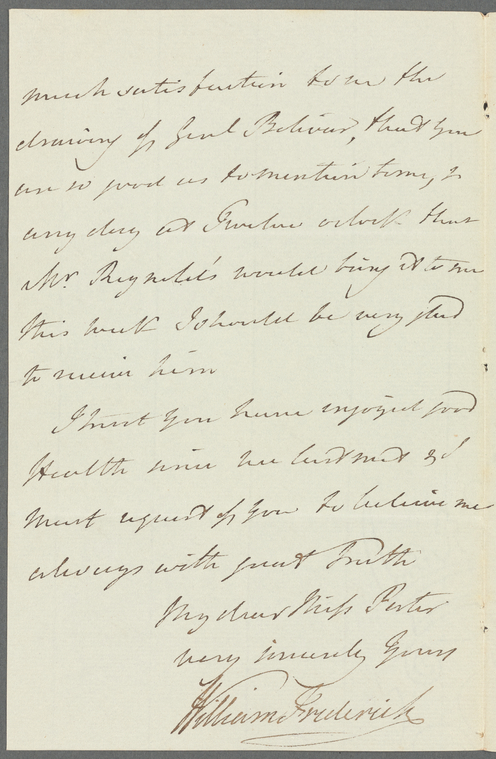 much satisfaction to see the
drawing of Genl Bolivar, that you
are so good as to mention to me, &
any day at Twelve o'clock that
Mr. Reynolds's would bring it to me
this week I should be very glad
to receive him
I trust you have enjoyed good
Health since we last met & I
must request of you to believe me
always with great Truth
My dear Miss Porter
very sincerely Yours
William Frederick